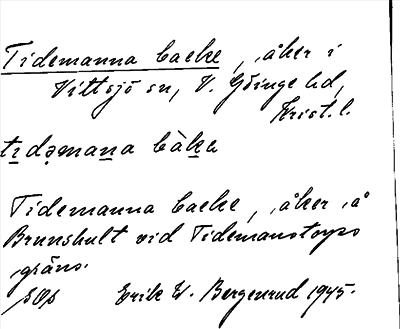 Tidemanna backe, åker i
Vittsjö sn, V. Göinge hd,
Krist. l.
tɪdəmana bàka
Tidemanna backe, åker å
Brunshult vid Tidemanstorps
gräns.
Erik W. Bergenrud 1945.